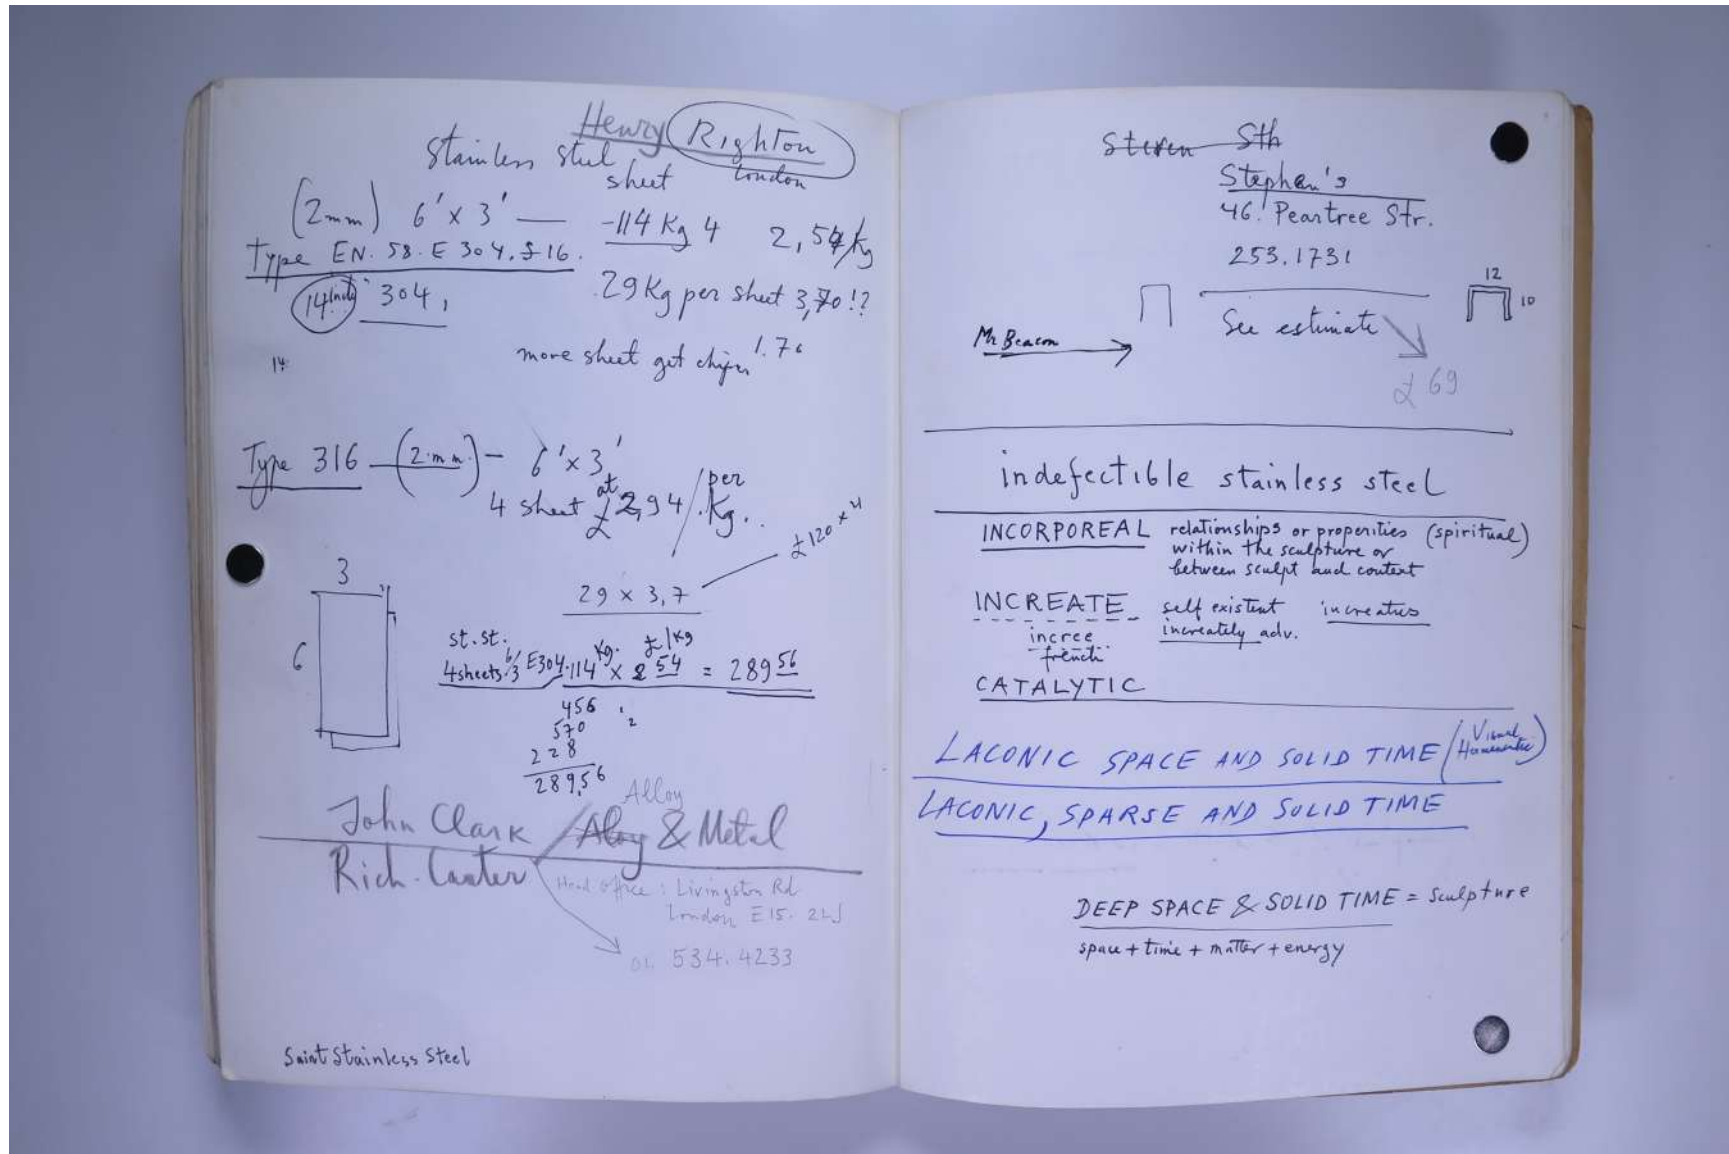 Henry Righton
Stainless steel
sheet
London
(2mm) 6' x 3' — -114 Kg 4 2,54/Kg
Type EN. 58. E 304. £16.
14 304,
29 Kg per sheet 3,70!?
more sheet get 1.70
14
Type 316 - (2 mm) - 6' x 3'
4 sheet at £2,94 / per Kg..
£120 x 4
29 x 3,7
3
6
st. st. Kg. £/Kg
4 sheets 6/3 E304 114 x 2 54 = 289 56
456
570
228
289,56
1
2
Alloy
John Clark / Aloy & Metal
Rich. Canter
Head office : Livingston Rd
London E15. 2LJ
01. 534. 4233
Saint Stainless Steel
Steven Sth
Stephen's
46. Peartree Str.
253.1731
12
10
See estimate
Mr Beacon
£ 69
indefectible stainless steel
INCORPOREAL relationships or properities (spiritual)
within the sculpture or
between sculpt and context
INCREATE self existent increates
incree increately adv.
french
CATALYTIC
LACONIC SPACE AND SOLID TIME (Visual
LACONIC, SPARSE AND SOLID TIME
DEEP SPACE & SOLID TIME = Sculpture
space + time + matter + energy